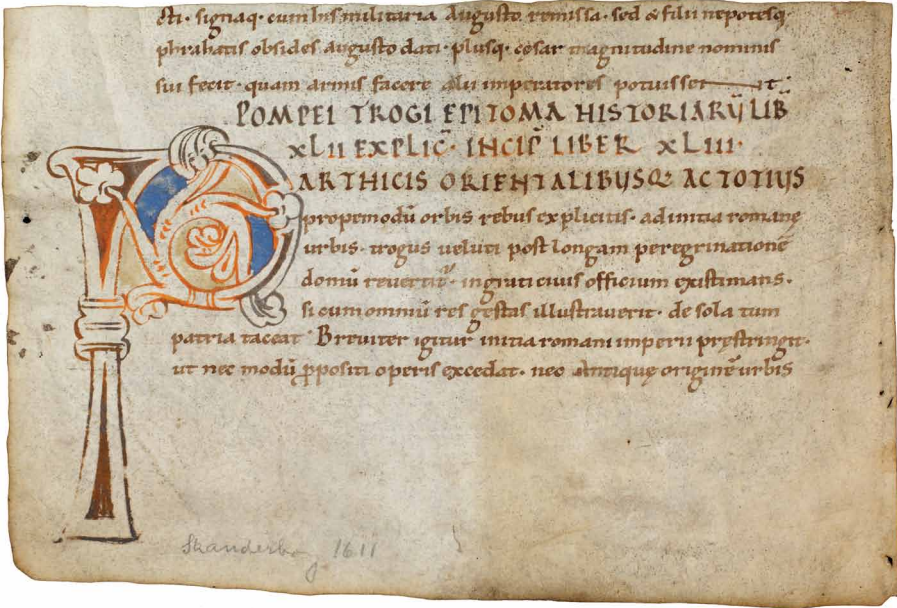 cti. signaq. cum his militaria augusto remissa. sed & filii nepotesq.
phrahatis obsides augusto dati. plusq. cęsar magnitudine nominis
sui fecit. quam armis facere alii imperatores potuisset t.
POMPEI TROGI EPITOMA HISTORIARŪ LIB
XLII EXPLIC. INCIP LIBER XLIII.
PARTHICIS ORIENTALIBUSQ. AC TOTIUS
propemodū orbis rebus explicitis. ad initia romanę
urbis. trogus veluti post longam peregrinationē
domū revertitur. ingrati civis officium existimans.
si cum omniū res gestas illustraverit. de sola tum
patria taceat. Breviter igitur initia romani imperii pręstringit.
ut nec modū ꝓpositi operis excedat. nec antiquę originē urbis
Skanderborg 1611